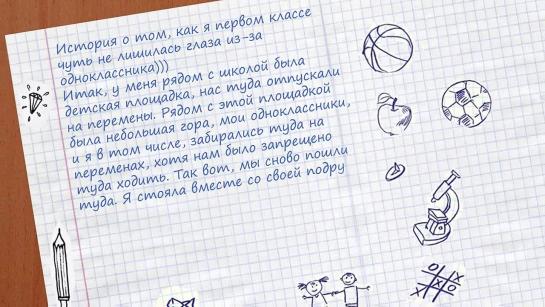 История о том, как я первом классе
чуть не лишилась глаза из-за
одноклассника)))
Итак, у меня рядом с школой была
детская площадка, нас туда отпускали
на перемены. Рядом с этой площадкой
была небольшая гора, мои одноклассники,
и я в том числе, забирались туда на
переменах, хотя нам было запрещено
туда ходить. Так вот, мы сново пошли
туда. Я стояла вместе со своей подру